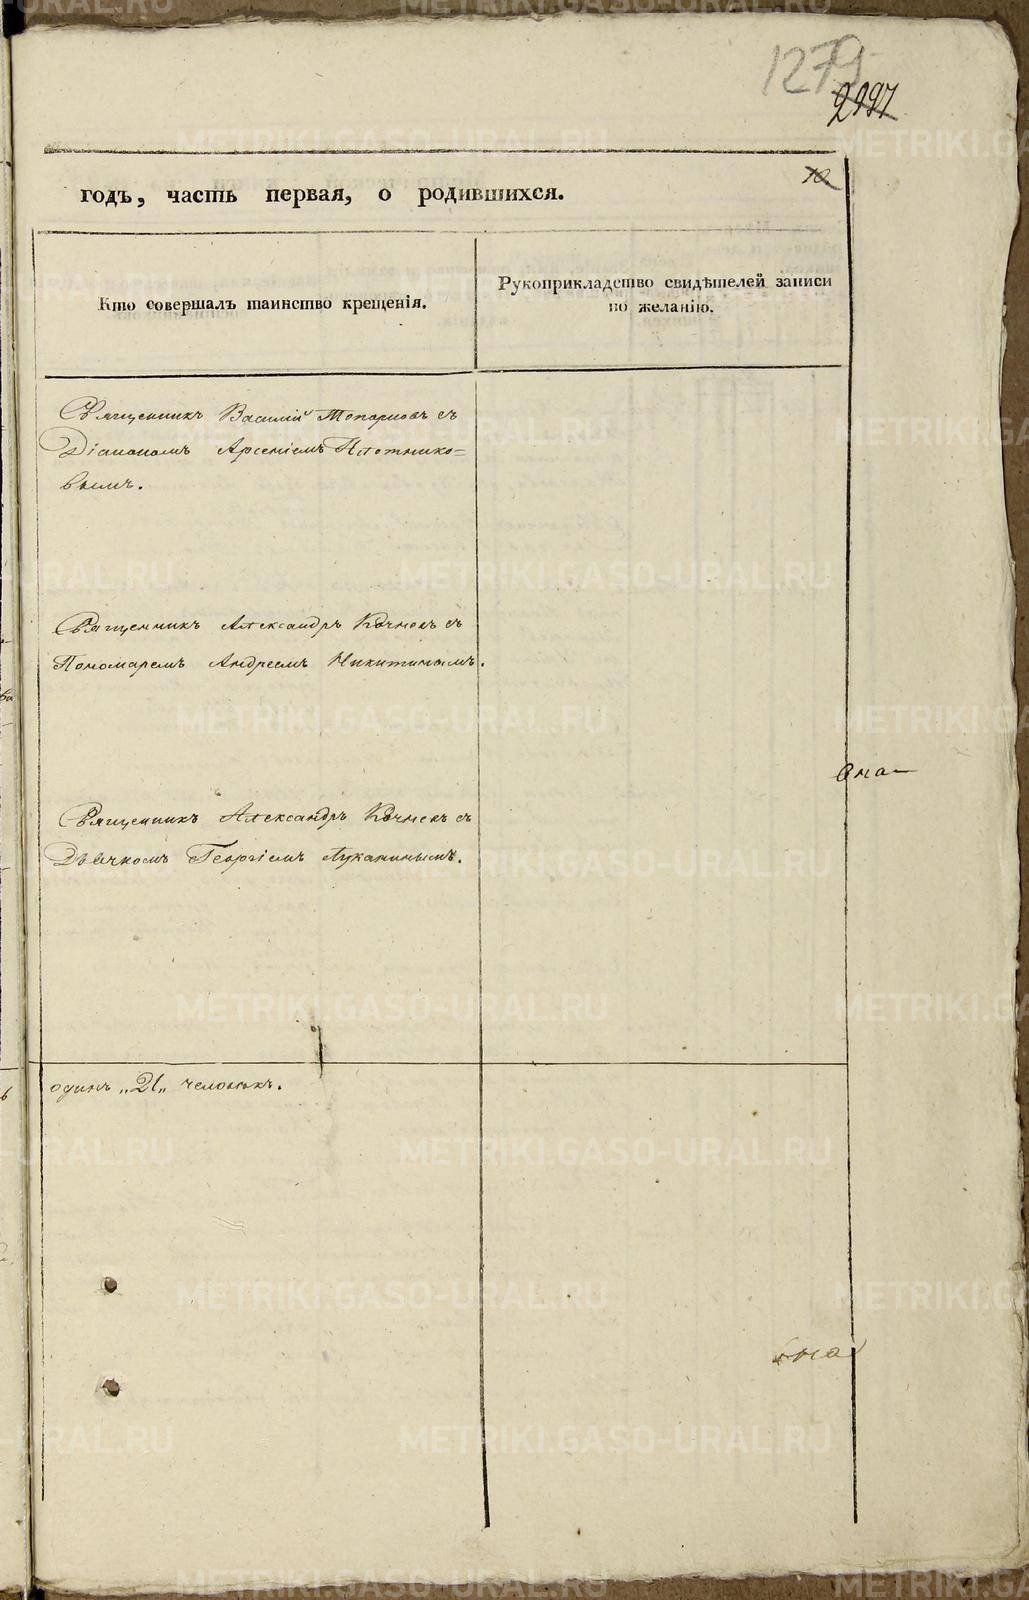 1279
2997
годъ, часть первая, о родившихся.
10
Кто совершалъ таинство крещенія.
Рукоприкладство свидѣтелей записи
по желанію.
Священникъ Василій Топарковъ съ
Діакономъ Арсеніемъ Плотнико=
вымъ.
Священникъ Александръ Кочневъ съ
Пономаремъ Андреемъ Никитинымъ.
Священникъ Александръ Кочневъ съ
Дьячкомъ Георгіемъ Луканинымъ.
одинъ „21„ человѣкъ.
METRIKI.GASO-URAL.RU